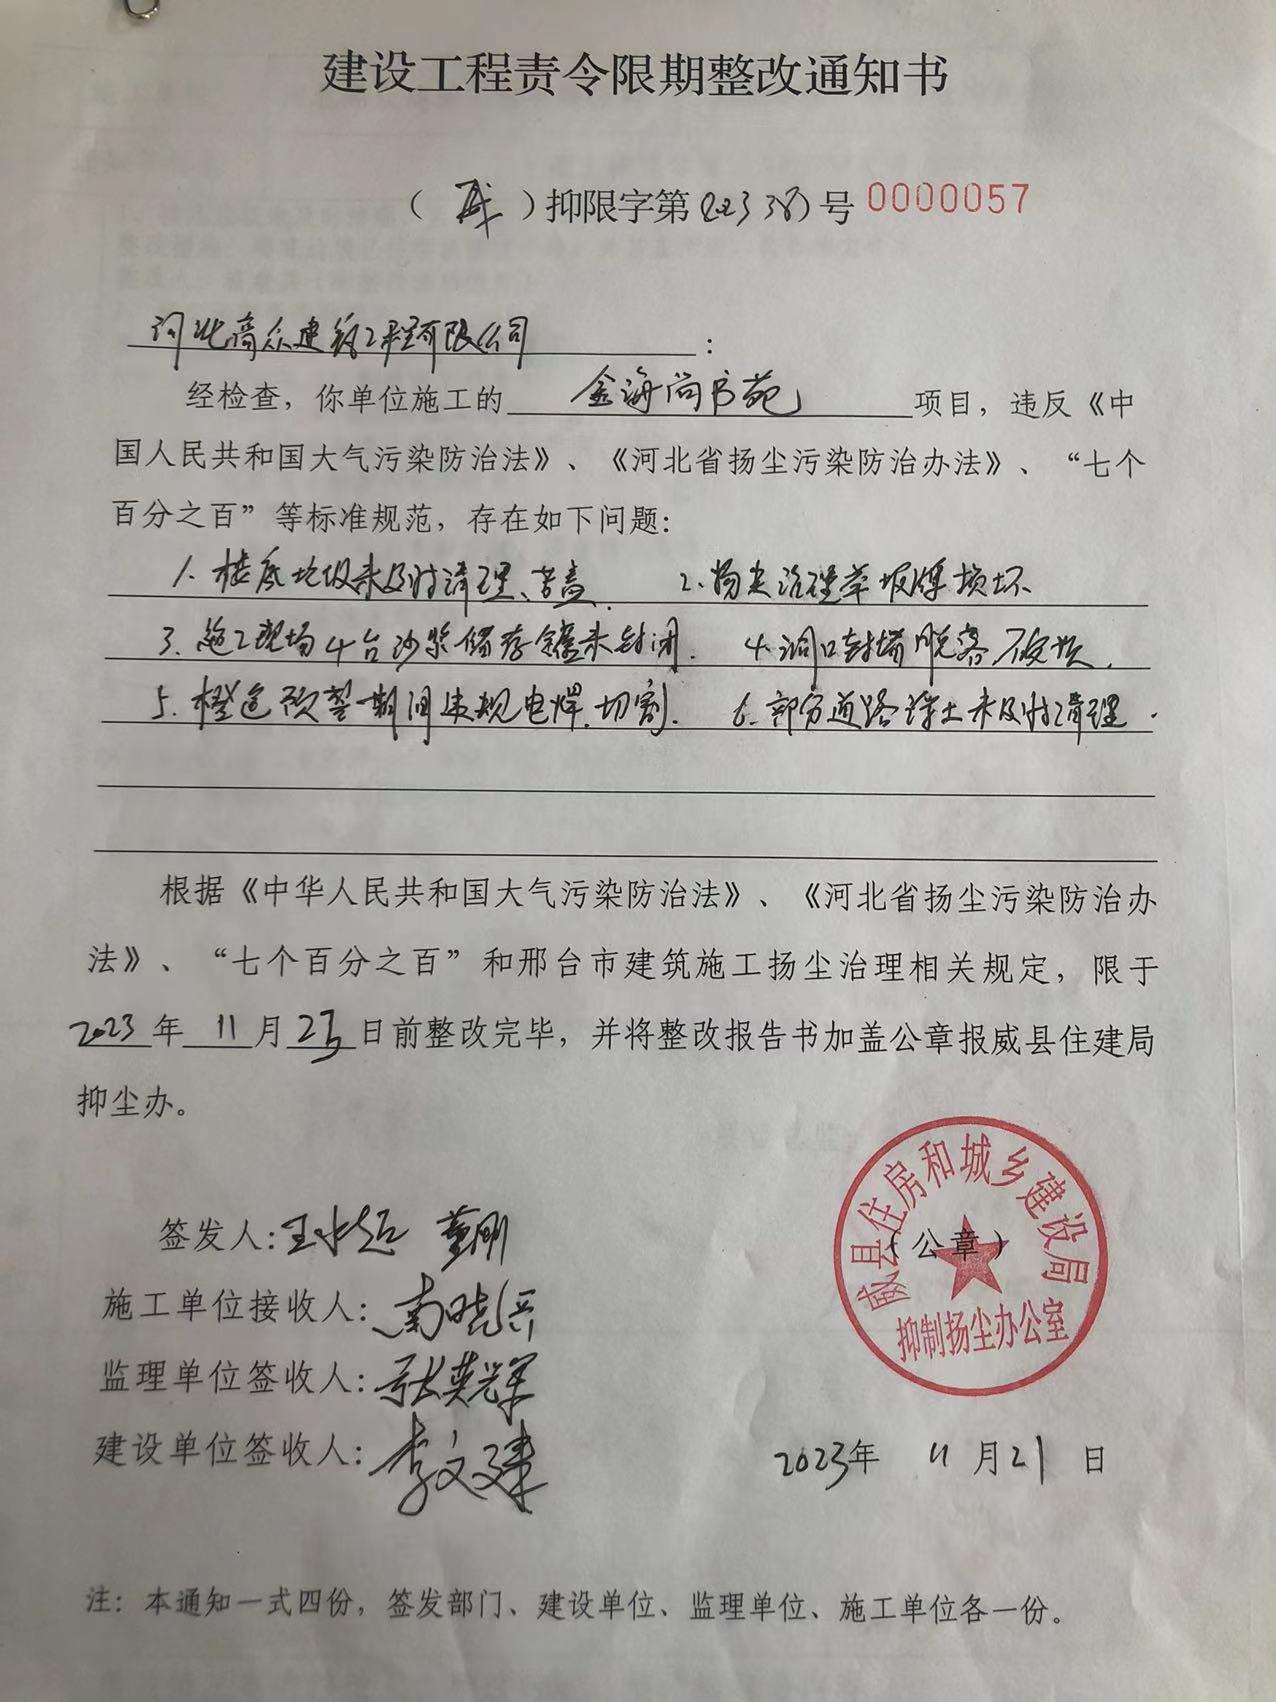 建设工程责令限期整改通知书
（威）抑限字第(02338)号 0000057
河北高众建筑工程有限公司：
经检查，你单位施工的 金海尚书苑 项目，违反《中
国人民共和国大气污染防治法》、《河北省扬尘污染防治办法》、“七个
百分之百”等标准规范，存在如下问题：
1. 楼底垃圾未及时清理、苫盖 2. 扬尘治理举报牌损坏
3. 施工现场4台沙浆储存罐未封闭. 4. 洞口封堵脱落破损.
5. 橙色预警期间违规电焊.切割. 6. 部分道路浮土未及时清理.
根据《中华人民共和国大气污染防治法》、《河北省扬尘污染防治办
法》、“七个百分之百”和邢台市建筑施工扬尘治理相关规定，限于
2023年 11月23日前整改完毕，并将整改报告书加盖公章报威县住建局
抑尘办。
威县住房和城乡建设局
签发人: 王水超 董刚
（公章）
抑制扬尘办公室
施工单位接收人: 南晓兵
监理单位签收人: 张英军
建设单位签收人: 李文建
2023年 11月21日
注：本通知一式四份，签发部门、建设单位、监理单位、施工单位各一份。